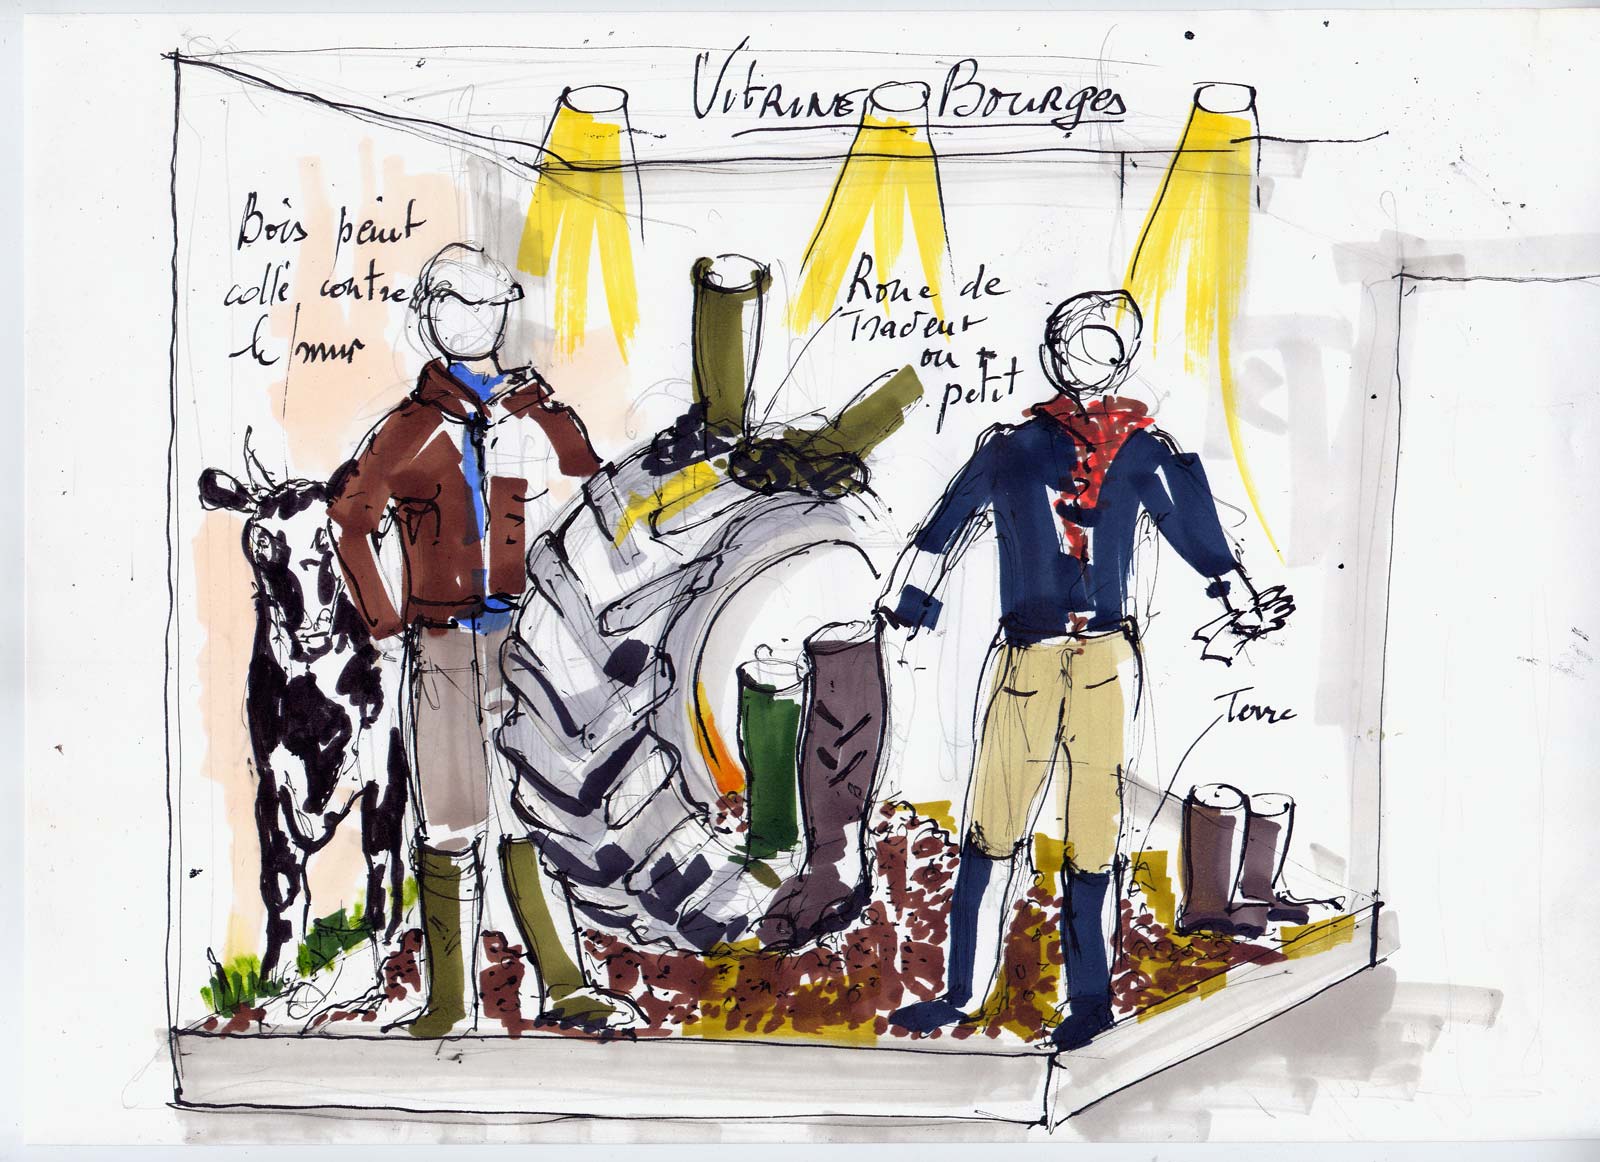 Vitrine Bourges
Bois peint
collé contre
le mur
Roue de
Tracteur
ou +
petit
Terre